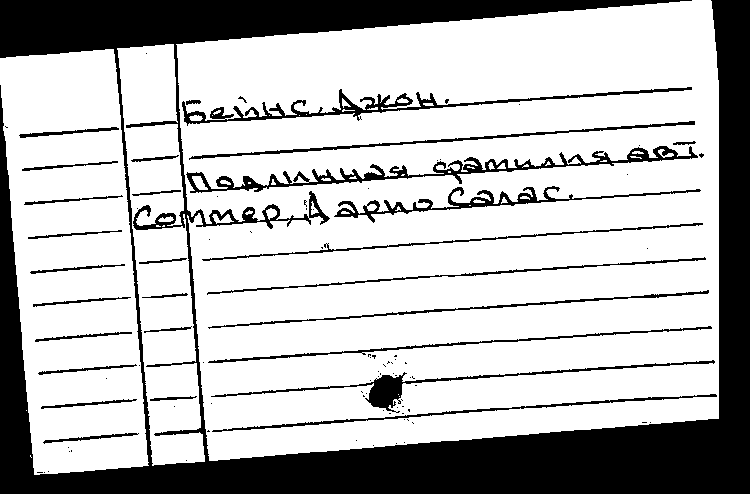 Бейнс, Джон.
Подлинная фамилия авт.
Соммер, Дарио Салас.